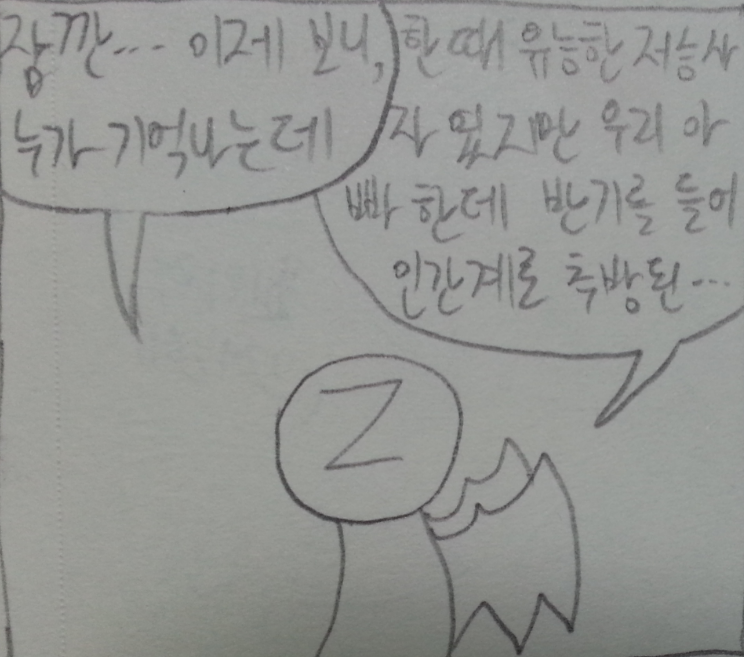 잠깐... 이제 보니,
누가 기억나는데
한때 유능한 저승사
자 였지만 우리 아
빠 한데 반기를 들어
인간계로 추방된...
Z